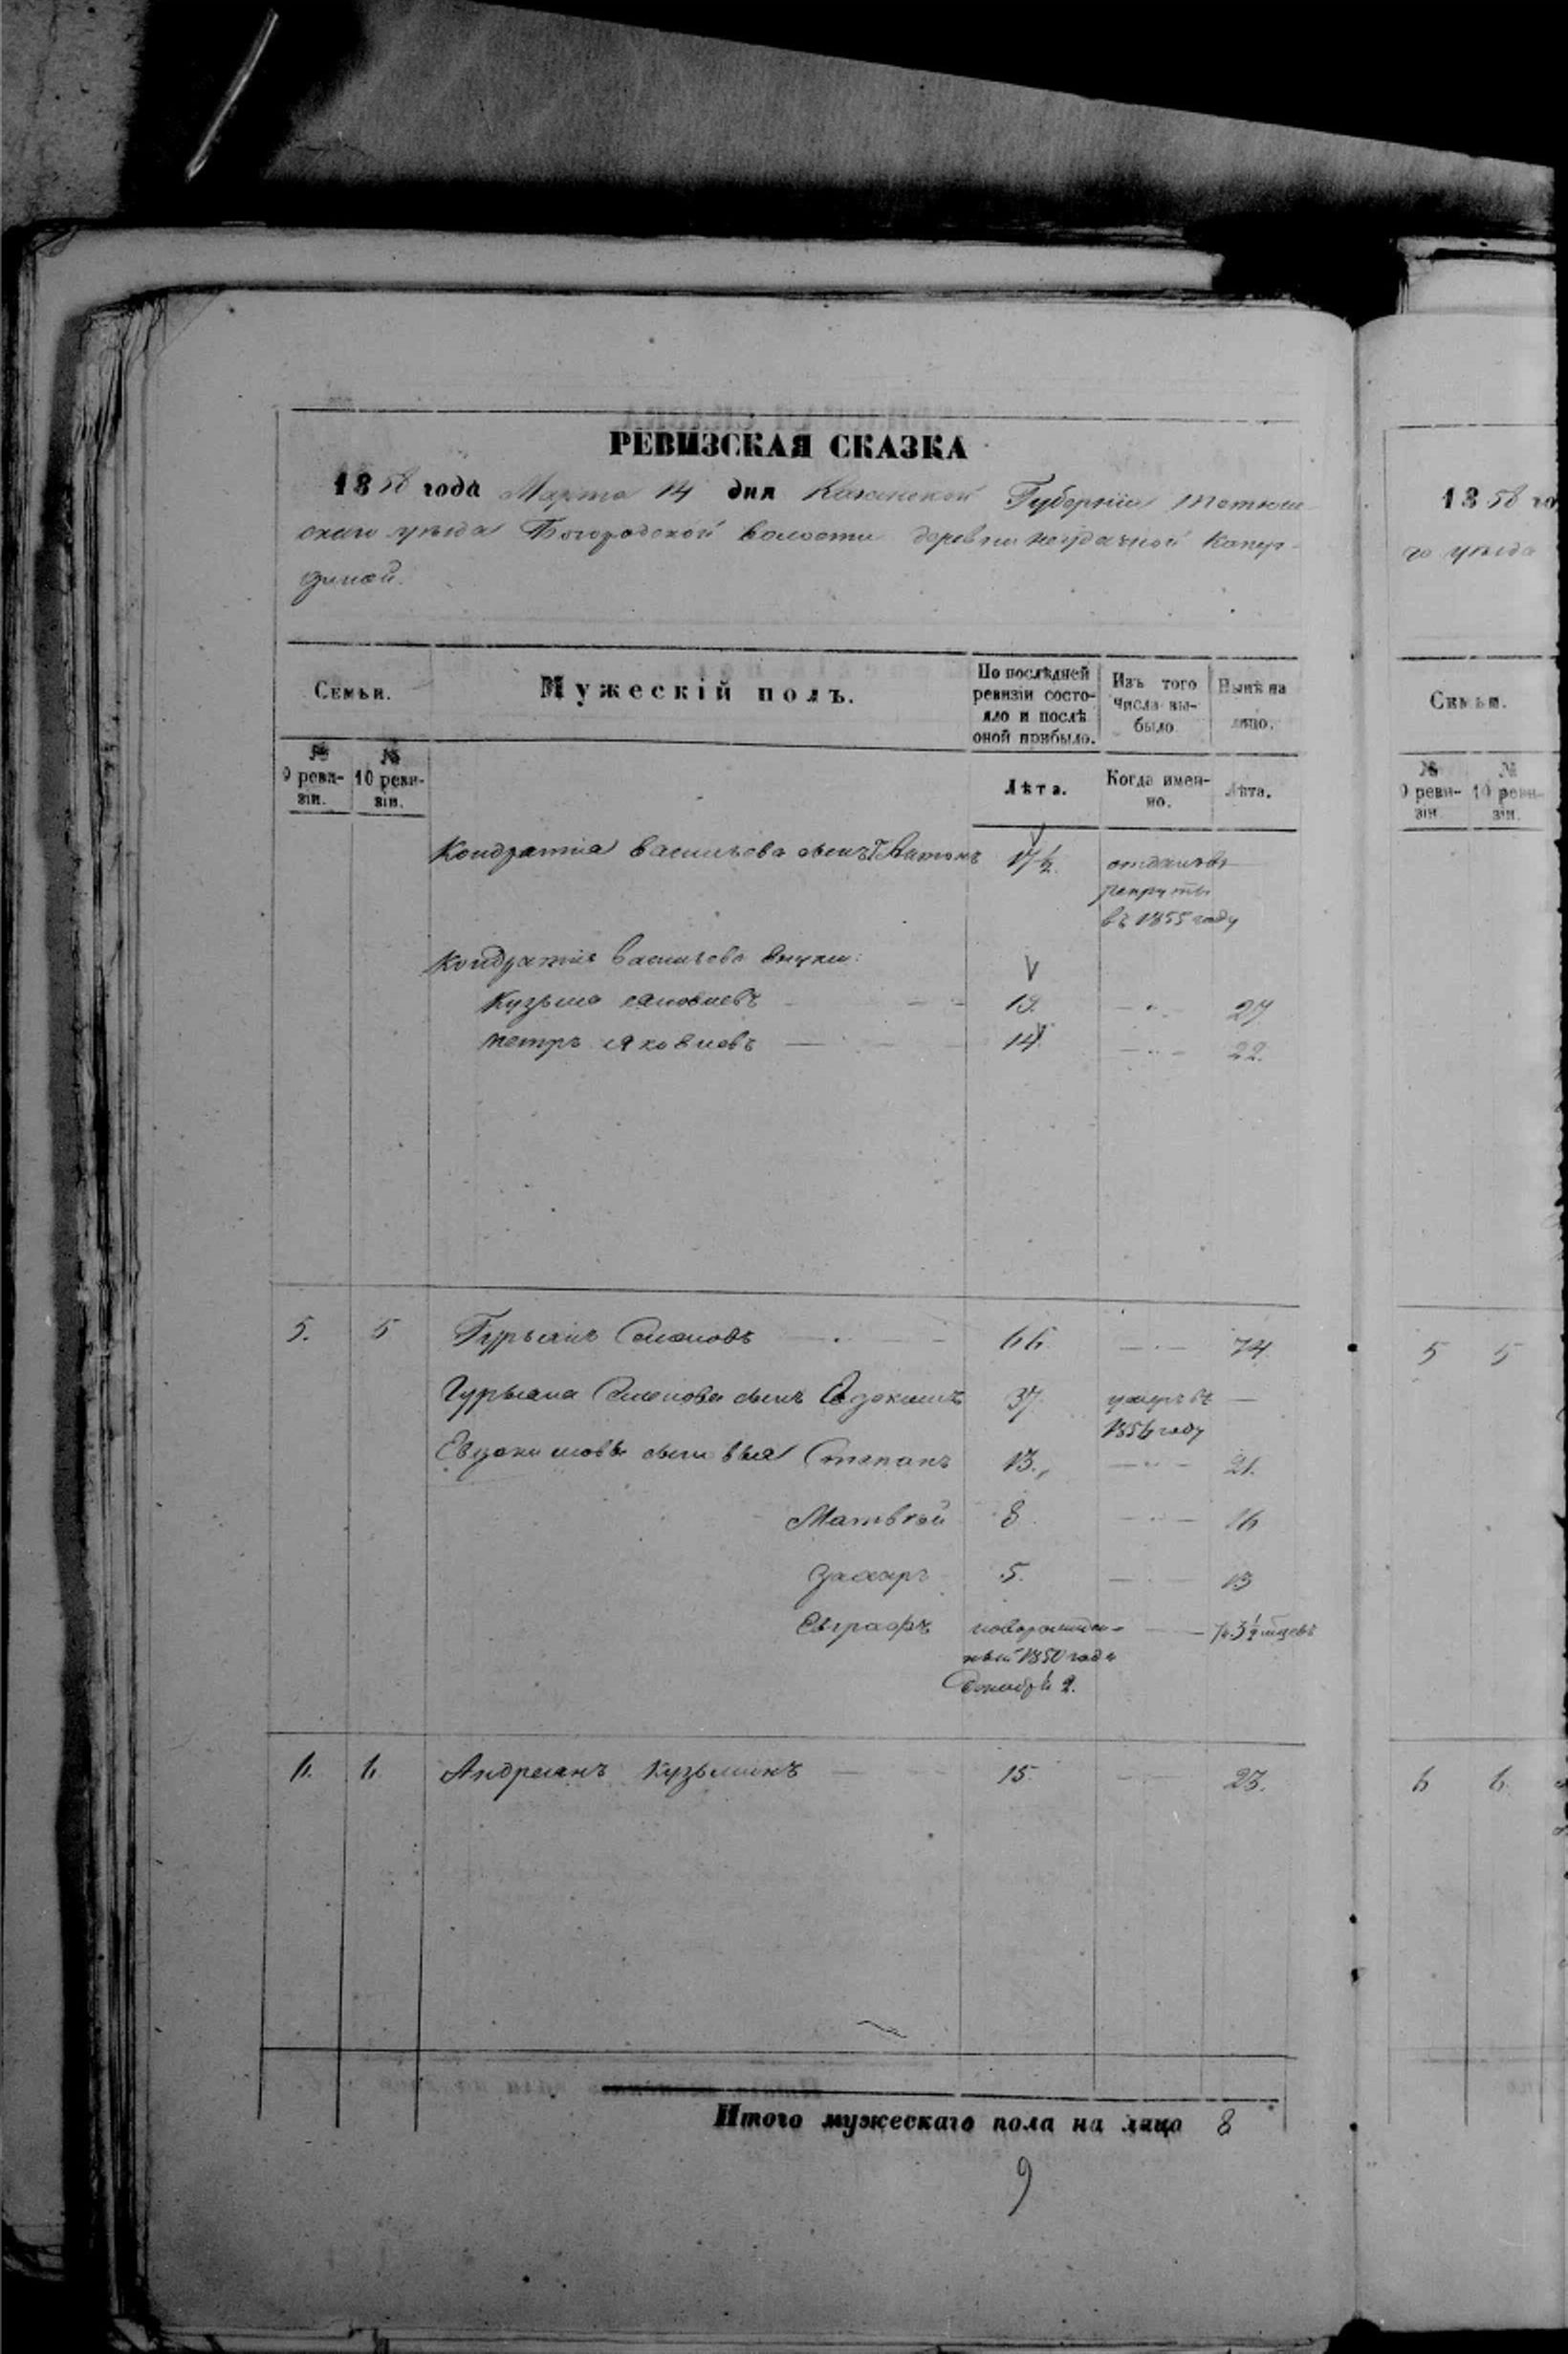 РЕВИЗСКАЯ СКАЗКА
1858 года Марта 14 дня Казанской Губерніи Тетюш-
скаго уѣзда Богородской волости деревни Неудачной Кощур-
Семьи.
Мужескій полъ.
По послѣдней ревизіи состояло и послѣ оной прибыло.
Изъ того числа выбыло
Нынѣ на лицо.
№ 9 ревизіи.
№ 10 ревизіи.
Лѣта.
Когда именно.
Лѣта.
Кондратія Васильева сынъ Антонъ 17½ отданъ въ
рекруты
въ 1855 году
Кондратія Васильева внуки:
Кузьма Яковлевъ 19. 27
Петръ Яковлевъ 14 22.
5. 5 Гурьянъ Семеновъ 66 74
Гурьяна Семенова сынъ Евдокимъ 37 умеръ въ —
1856 году
Евдокимовы сыновья Степанъ 13. 21.
Матвѣй 8 16
Захаръ 5. 13
Евграфъ новорожден-
ный 1850 года
Декабря 2.
6. 6 Андреянъ Кузьминъ 15 23.
Итого мужескаго пола на лицо 8
9
1858 го
го уѣзда
Семьи.
№ 9 ревизіи.
№ 10 ревизіи.
5 5
6 6